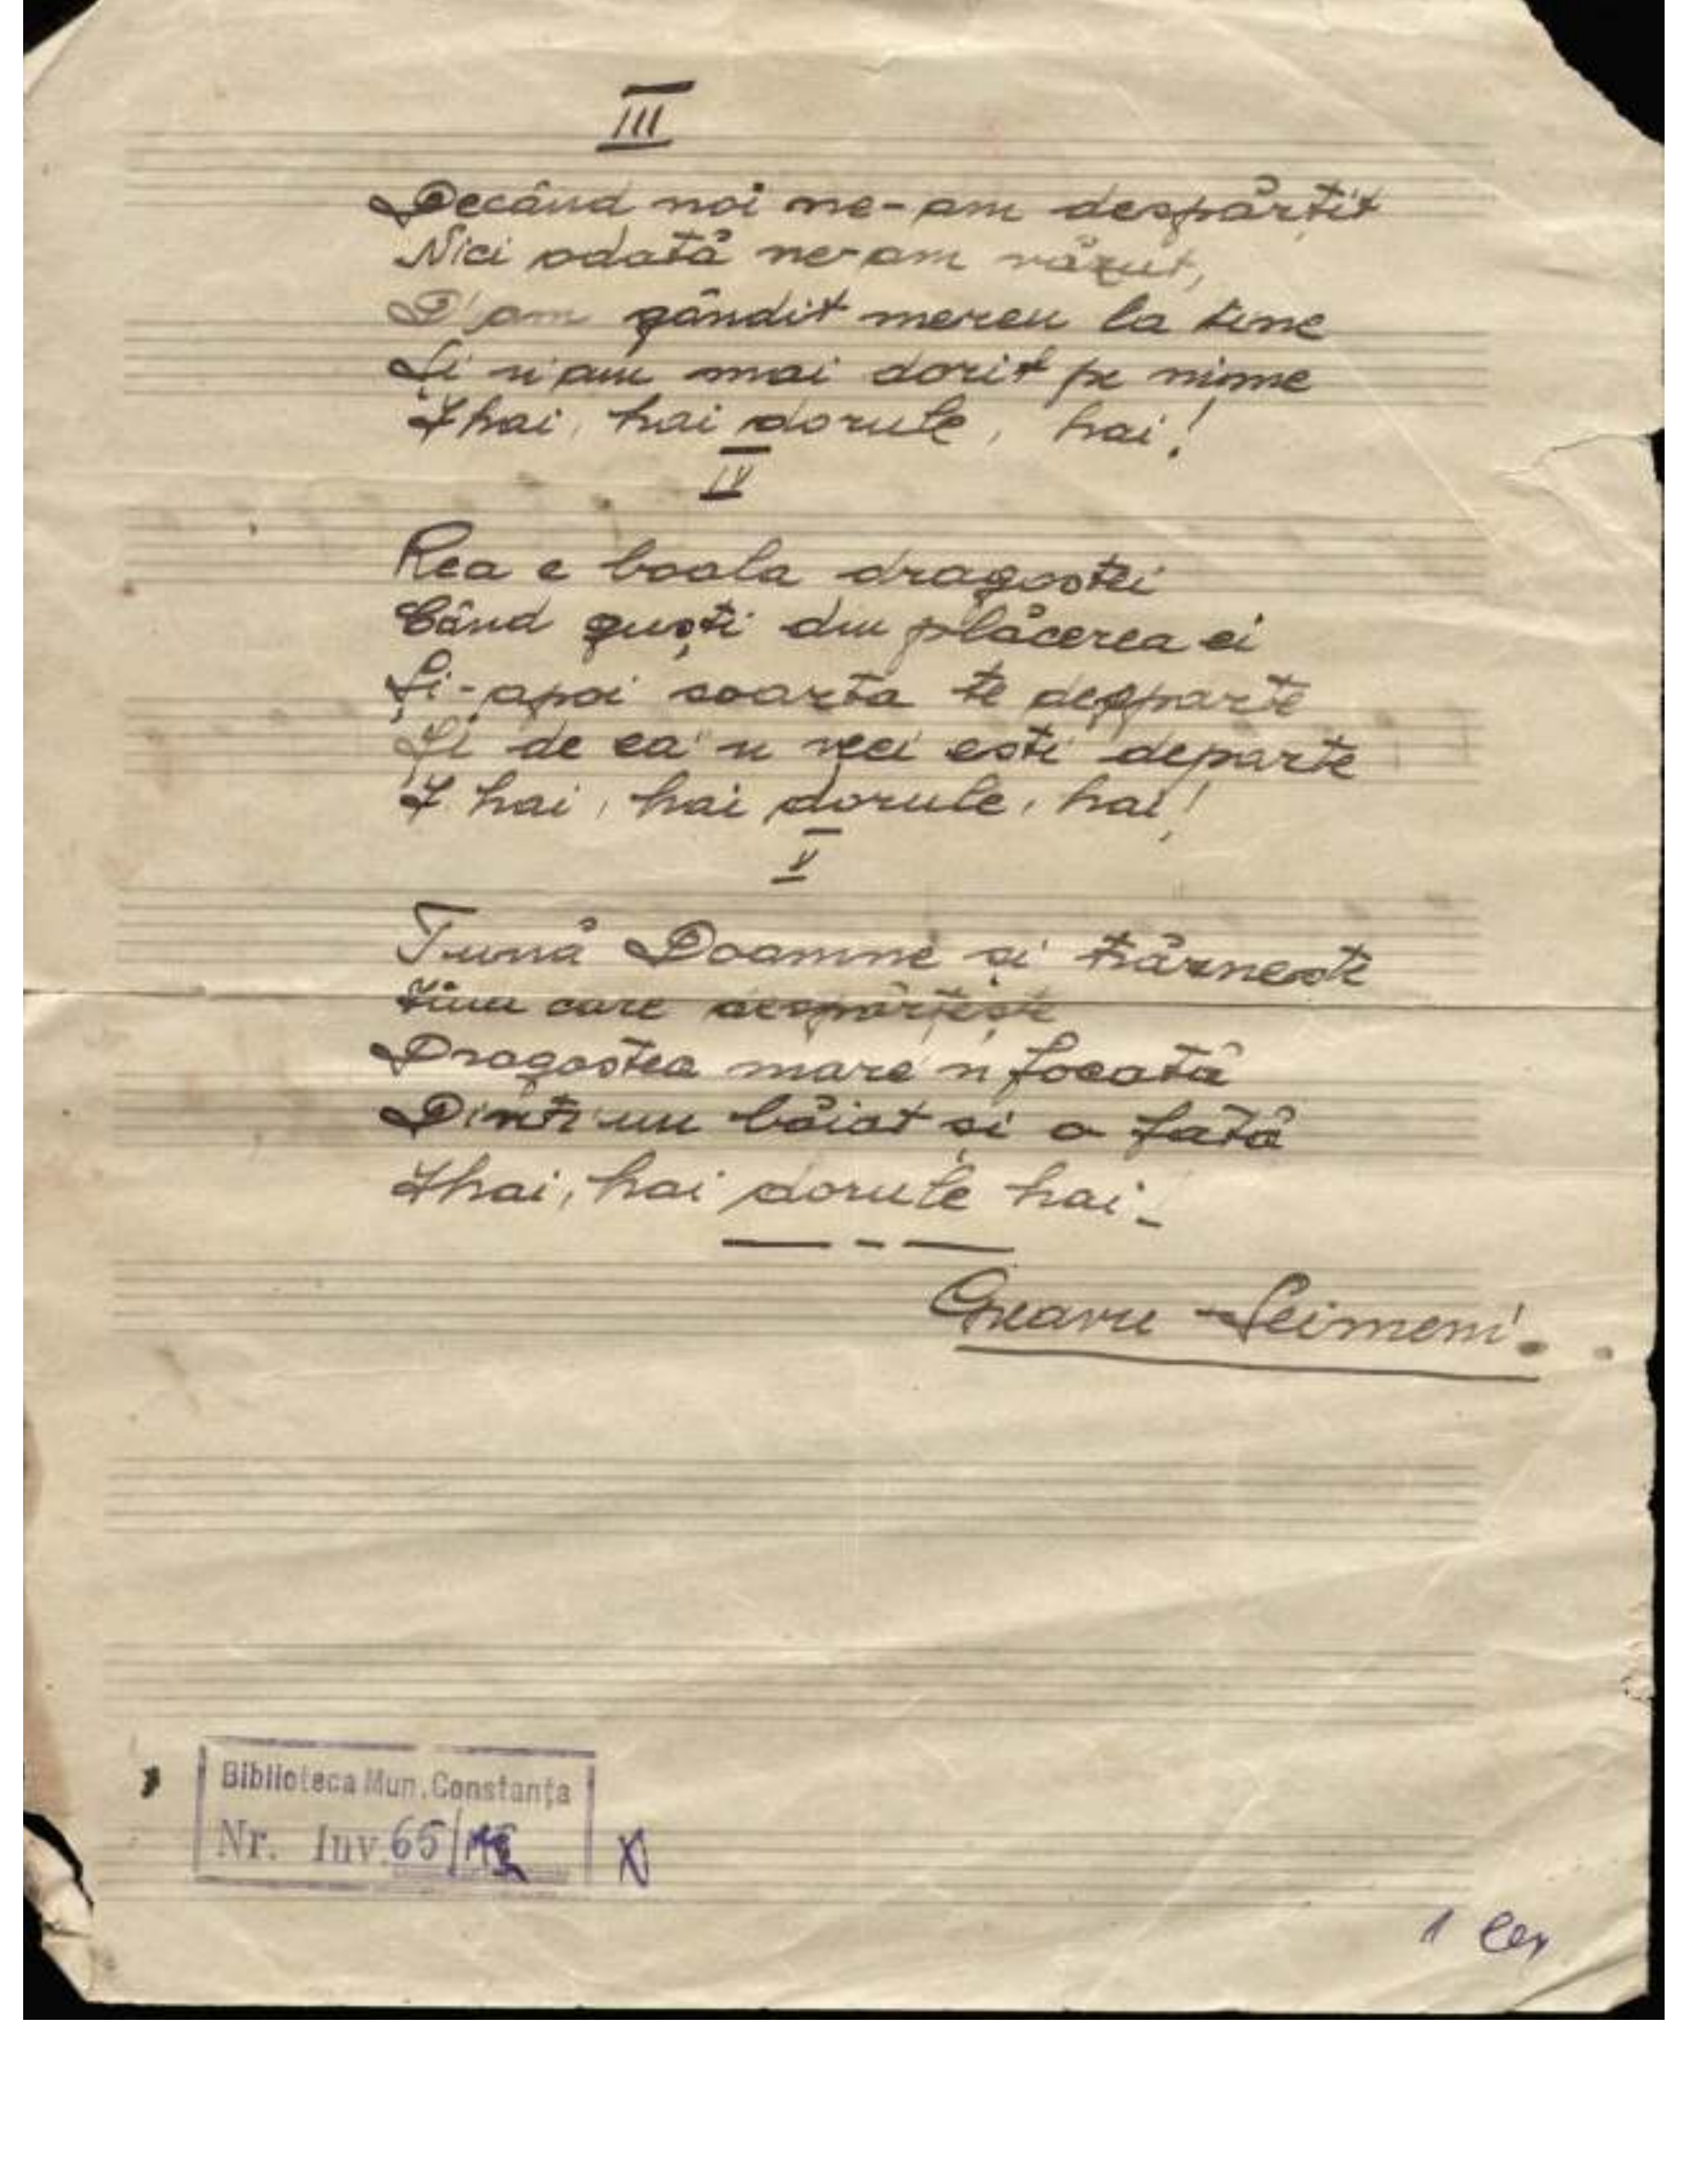 III
Decând noi ne-am despărțit
Nici odată ne-am văzut,
D'am gândit mereu la tine
Și n'am mai dorit pe nime
Ihai, hai dorule, hai!
IV
Rea e boala dragostei
Când guști din plăcerea ei
Și-apoi soarta te desparte
Și de ea'n veci ești departe
I hai, hai dorule, hai!
V
Tună Doamne și trăznește
care despărțește
Dragostea mare'n focată
Dintr'un băiat și o fată
Ihai, hai dorule hai!
Seimeni.
Biblioteca Mun. Constanța
Nr. Inv. 65/
1